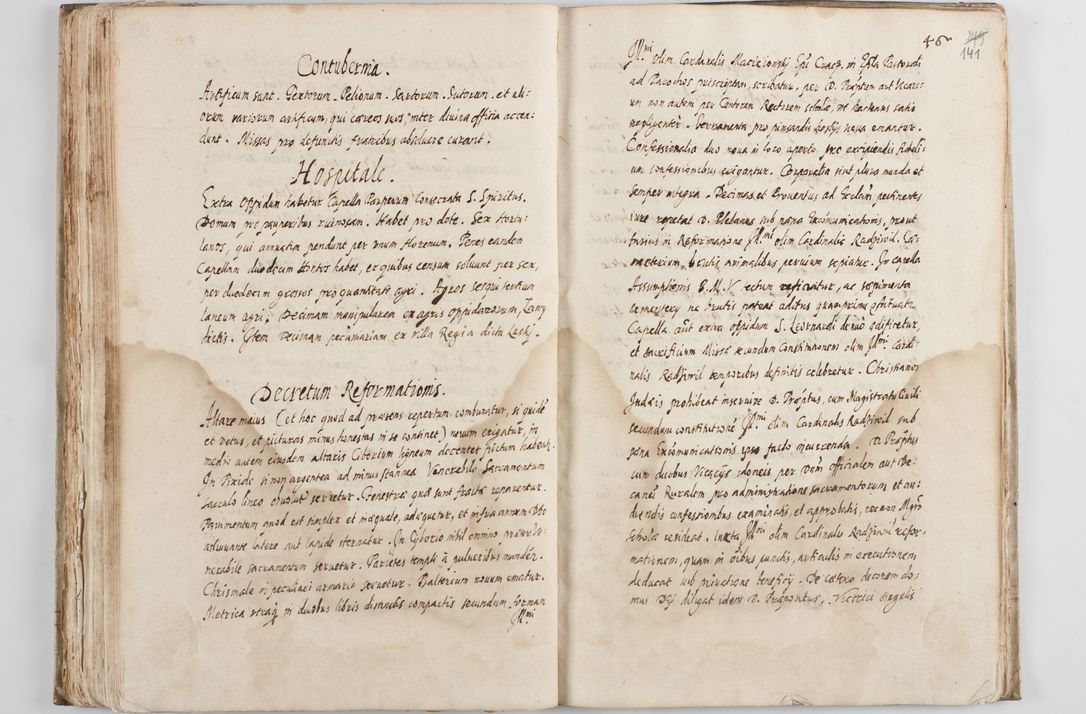 Contubernia.
Artificum sunt. Textorum. Pelionum. Sartorum. Sutorum. et ali-
orum variorum artificum, qui cereos suos inter diuina officia accen-
dunt. Missas pro defunctis fratribus absoluere curant.
Hospitale.
Extra Oppidum habetur Capella Pauperum Consecrata S. Spiritus.
Domum pro pauperibus ruinosam. Habet pro dote. Sex hortu-
lanos, qui annuatim pendunt per vnum florenum. Penes eandem
Capellam duodecim hortos habet, ex quibus censum soluunt per sex,
per duodecim grossos pro quantitate agri. Agros sesqui tertium
laneum agri. Decimam manipularem ex agris oppidanorum,
dictis. Item Decimam pecuniariam ex villa Regia dicta
Decretum Reformationis.
Altare maius (et hoc quod ad præsens repertum comburatur, si quidē
et vetus, et picturas minus honestas in se continet) nouum erigatur, in
medio autem eiusdem altaris Ciborium ligneum decenter pictum habeat.
In Pixide si non argentea ad minus stannea Venerabile Sacramentum
sacculo lineo seruetur. Fenestræ quæ sunt fractæ reparentur.
Pauimentum quod est simplex et inæquale, adæquetur, et infra annum Deo
adiuuante latere aut lapide sternatur. In Cyborio nihil omnino præter Ve-
nerabile Sacramentum seruetur. Parietes templi à pulueribus mundent.
Chrismale in peculiari armario seruetur. Psalterium nouum ematur.
Metrica vtraq in duobus libris distinctis compactis secundum formam
Ill.mi
46
141
Ill.mi olim Cardinalis Macieiowsky Epi Crac. in Epla Pastorali
ad Parochos præscriptam, scribatur, per D. Præptum aut Vicari-
um non autem per Cantorem Rectorem scholæ, vt hactenus satis
negligenter. Ferramenta pro pinsandis hostijs noua emantur.
Confessionalia duo noua in loco aperto pro excipiendis fideli-
um confessionibus erigantur. Corporalia sint plura munda et
semper integra. Decimas et Prouentus ad Ecclam pertinentes
iure repetat D. Plebanus sub pæna Excommunicationis, prout
fusius in Reformatione Ill.mi olim Cardinalis Radziwil. Cæ-
meterium, brutis animalibus peruium sepiatur. In capella
Assumptionis B. M. V. tectum reficiatur, ac
ne brutis pateat aditus quamprimum
Capella aūt extra oppidum S. Leonardi denuo ædificetur,
et sacrificium Missæ secundum Constitutionem olim Ill.mi Cardi-
nalis Radziwil temporibus definitis celebretur. Christianos
Iudæis prohibeat inseruire D. Præptus, cum Magistratu Ciuili
secundum constitutionē Ill.mi olim Cardinalis Radziwil sub
pæna Excomunicationis ipso facto incurrenda. D. Præptus
cum duobus Vicarijs idoneis per Dnm officialem aut De-
canū Ruralem pro administratione sacramentorum et au-
diendis confessionibus examinatis, et approbatis, necnon Mgro
Scholæ resideat. Iuxta Ill.mi olim Cardinalis Radziwil refor-
mationem, quam in oibus punctis, articulis in executionem
deducat sub priuatione beneficij. De cætero decorem do-
mus Dei diligat idem D. Præpositus. Victrici singulis